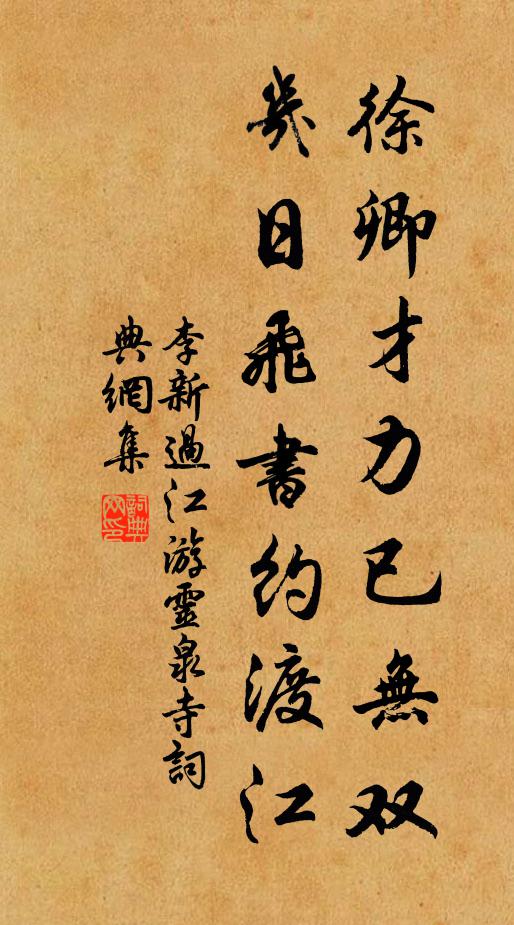 徐卿才力已無双
幾日飛書約渡江
李新過江游靈泉寺詞
典網集
詞典
网印